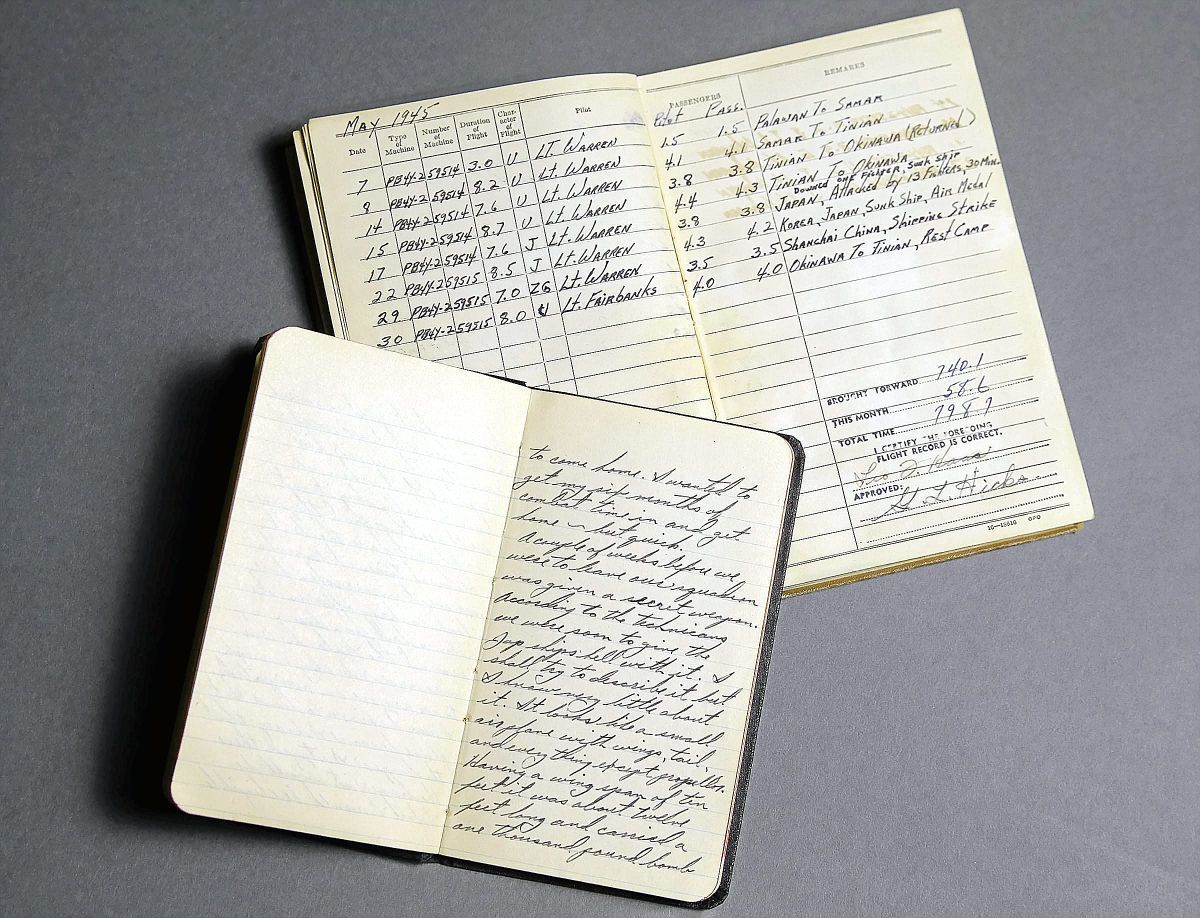 MAY 1945
Date Type of Machine Number of Machine Duration of Flight Character of Flight Pilot PASSENGERS REMARKS
Pilot Pass.
7 PB4Y-2 59514 3.0 U LT. WARREN 1.5 1.5 PALAWAN TO SAMAR
8 PB4Y-2 59514 8.2 U Lt. WARREN 4.1 4.1 SAMAR TO TINIAN
14 PB4Y-2 59514 7.6 U Lt. WARREN 3.8 3.8 TINIAN TO OKINAWA (RETURNED)
15 PB4Y-2 59514 8.7 U Lt. WARREN 4.4 4.3 TINIAN TO OKINAWA
DOWNED ONE FIGHTER, SUNK SHIP
17 PB4Y-2 59514 7.6 J Lt. WARREN 3.8 3.8 JAPAN, ATTACKED BY 13 FIGHTERS, 30 MIN.
22 PB4Y-2 59515 8.5 J Lt. WARREN 4.3 4.2 KOREA, JAPAN, SUNK SHIP, AIR MEDAL
29 PB4Y-2 59515 7.0 ZG Lt. WARREN 3.5 3.5 SHANGHAI CHINA, SHIPPING STRIKE
30 PB4Y-2 59515 8.0 U Lt. FAIRBANKS 4.0 4.0 OKINAWA TO TINIAN, REST CAMP
BROUGHT FORWARD 740.1
THIS MONTH 58.6
TOTAL TIME 798.7
I CERTIFY THE FOREGOING
FLIGHT RECORD IS CORRECT.
APPROVED:
G L Hicks
16—13616 GPO
to come home. I wanted to
get my six months of
combat time in and get
home - but quick.
A couple of weeks before we
were to leave our squadron
was given a secret weapon.
According to the technicans
we were soon to give the
Jap ships hell with it. I
shall try to describe it but
I know very little about
it. It looks like a small
airplane with wings, tail
and everything except propellor.
Having a wing span of ten
feet it was about twelve
feet long and carried a
one thousand pound bomb